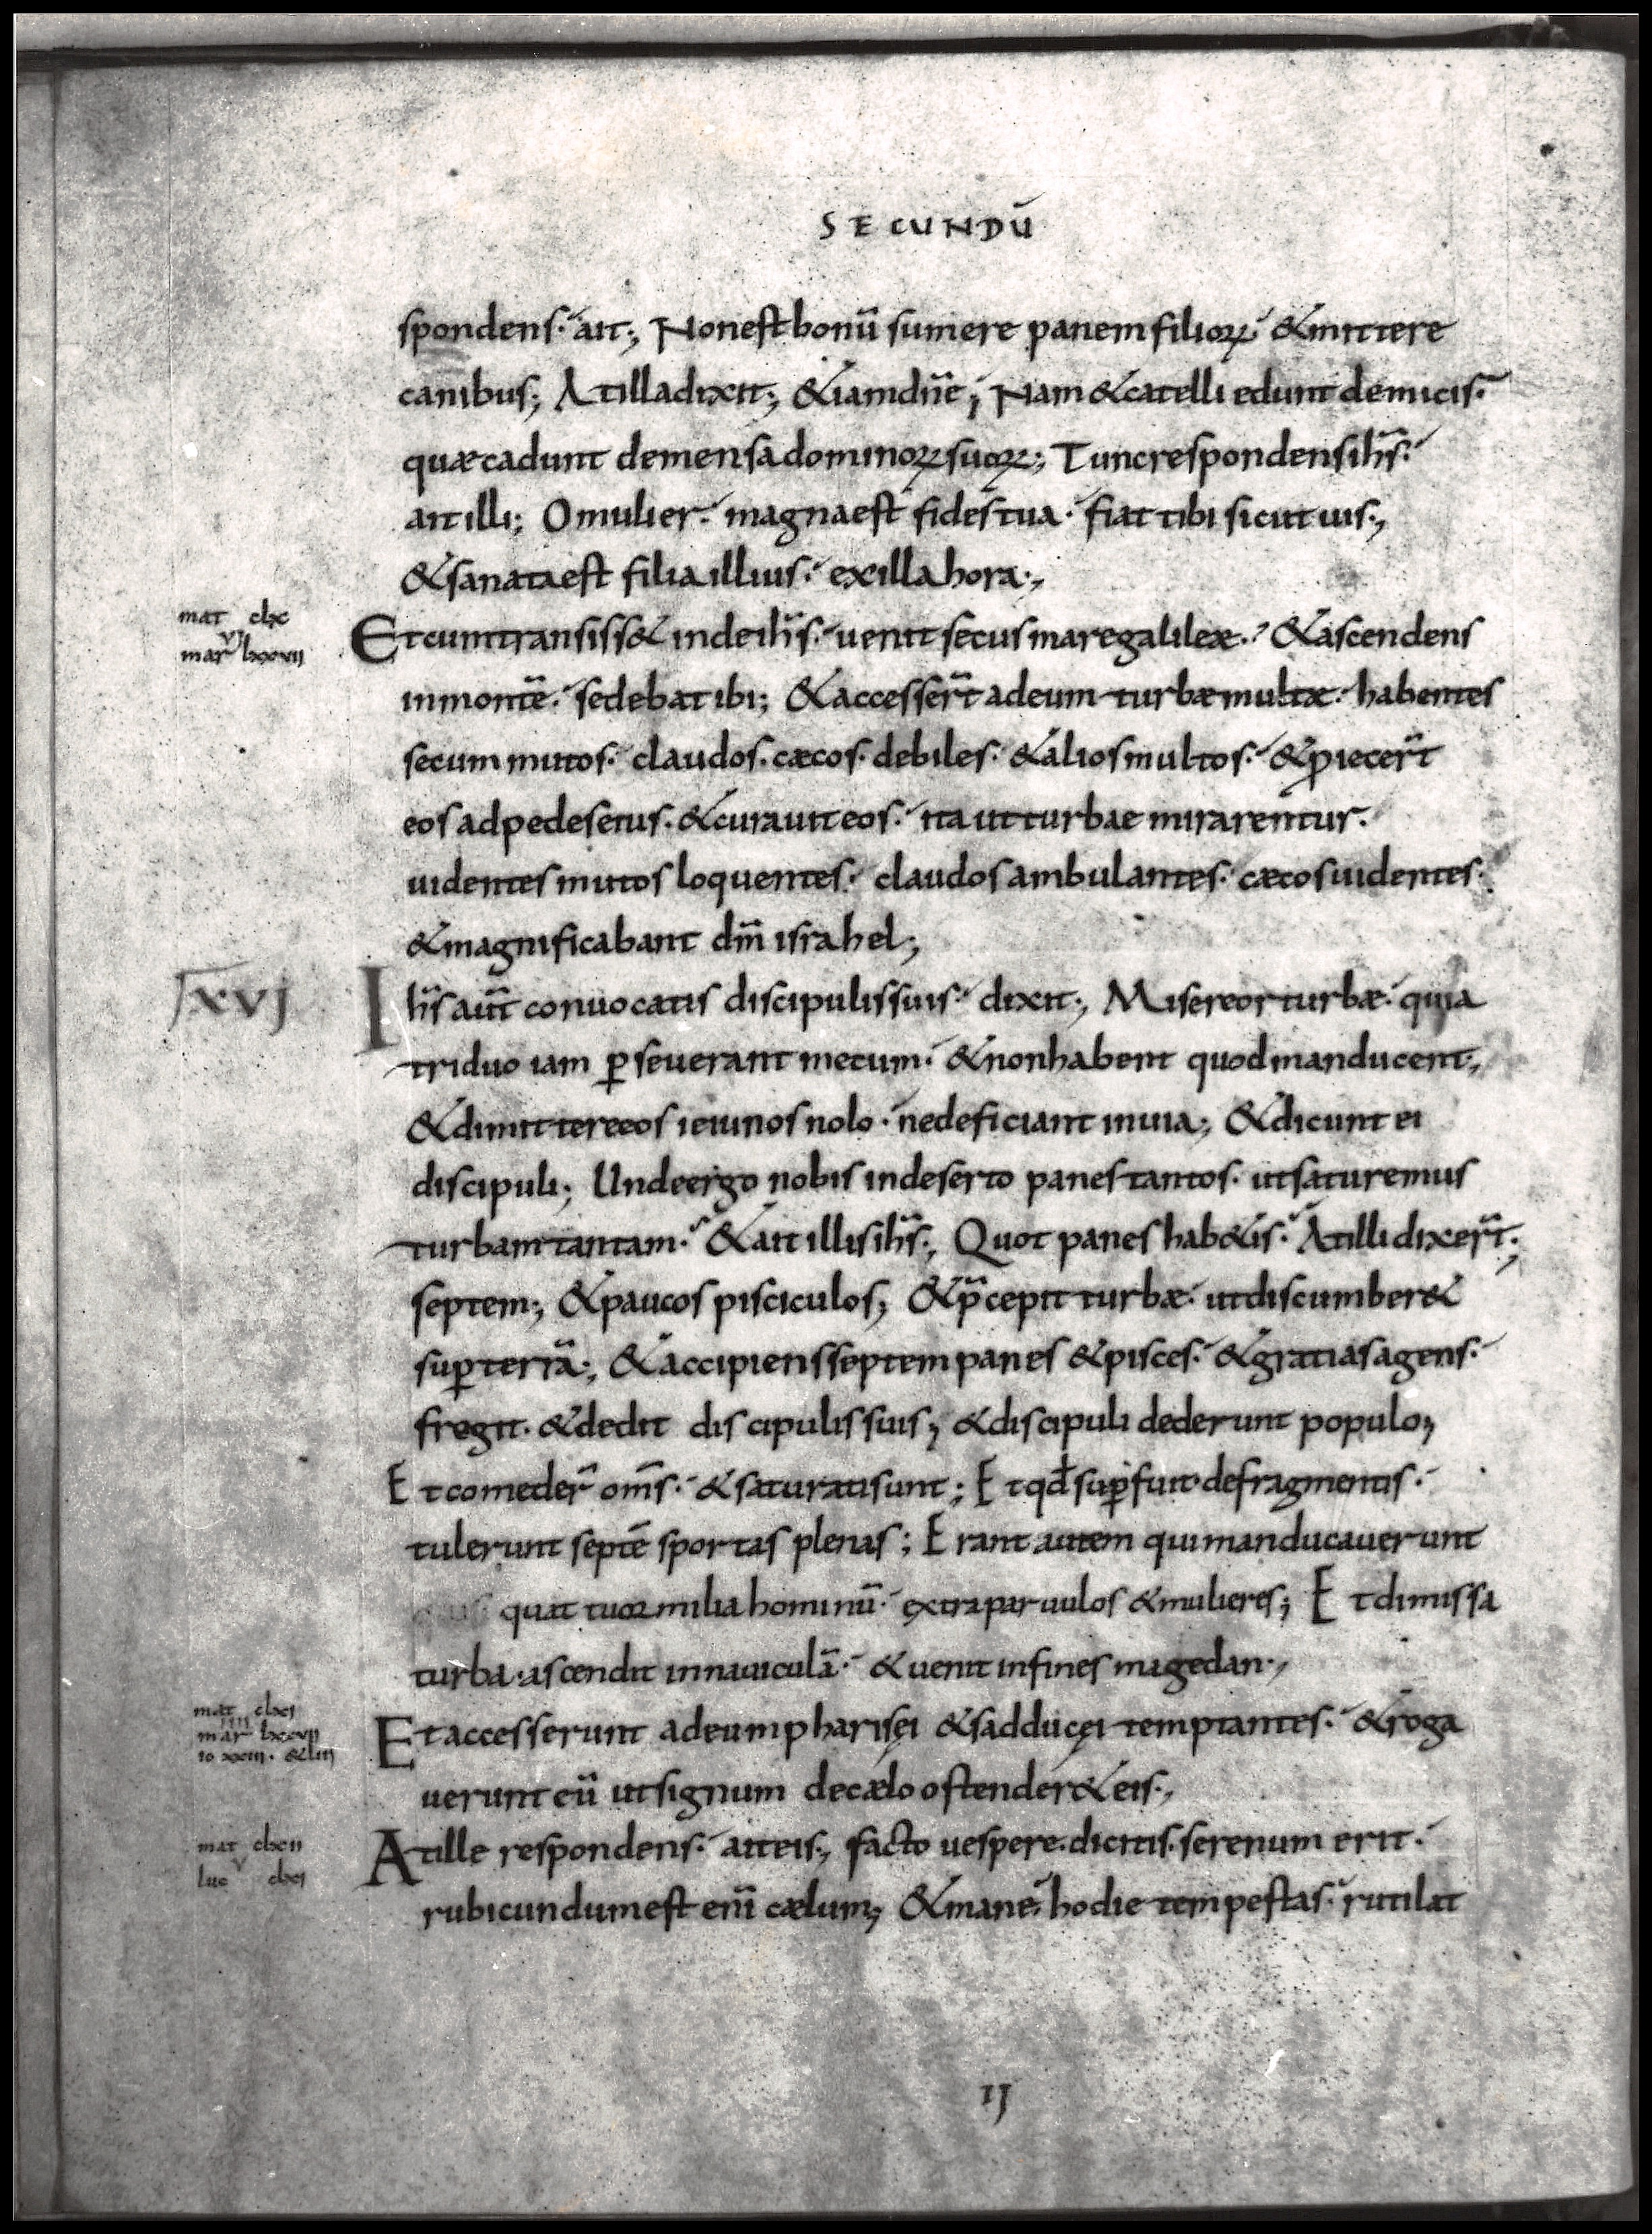 SECUNDŪ
spondens. ait; Non est bonū sumere panem filioꝝ & mittere
canibus; At illa dixit; &iam dñe; Nam & catelli edunt de micis.
quæ cadunt de mensa dominoꝝ suoꝝ; Tunc respondens ihs̄.
ait illi; O mulier. magna est fides tua. fiat tibi sicut uis;
& sanata est filia illius. ex illa hora;
mat clxc
vj
mar lxxvii
Et cum transiss& inde ihs̄. uenit secus mare galileæ. & ascendens
in montē. sedebat ibi; & accesser̄t ad eum turbæ multæ. habentes
secum mutos. claudos. cæcos. debiles. & alios multos. & ꝓiecer̄t
eos ad pedes eius. & curauit eos. ita ut turbae mirarentur.
uidentes mutos loquentes. claudos ambulantes. cæcos uidentes.
& magnificabant dm̄ israhel;
xvj
Ihs̄ aūt conuocatis discipulis suis. dixit; Misereor turbæ. quia
triduo iam ꝑseuerant mecum. & non habent quod manducent;
& dimittere eos ieiunos nolo. ne deficiant in uia; & dicunt ei
discipuli; Unde ergo nobis in deserto panes tantos. ut saturemus
turbam tantam. & ait illis ihs̄; Quot panes hab&is. At illi dixer̄t;
septem; & paucos pisciculos; & p̄cepit turbæ. ut discumber&
suꝑ terrā; & accipiens septem panes & pisces. & gratias agens.
fregit. & dedit discipulis suis; & discipuli dederunt populo;
Et comeder̄ om̄s. & saturati sunt; Et qd̄ suꝑfuit de fragmentis.
tulerunt septē sportas plenas; Erant autem qui manducauerunt
quattuor milia hominū. extra paruulos & mulieres; Et dimissa
turba. ascendit in nauiculā. & uenit in fines magedan;
mat clxi
iiii
mar lxxvii
io xxiii. & liii
Et accesserunt ad eum pharisęi & sadducęi temptantes. & roga
uerunt eū ut signum de cælo ostender& eis;
mat clxii
v
luc clxi
At ille respondens. ait eis; facto uespere. dicitis. serenum erit.
rubicundum est enī cælum; & mane. hodie tempestas. rutilat
IJ